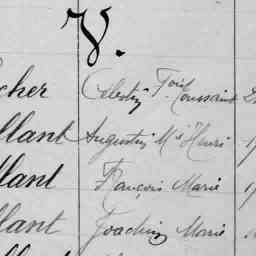 V.
cher Célestin Fois Toussaint
llant Augustin Mie Henri 1
llant François Marie 1
llant Joachim Marie